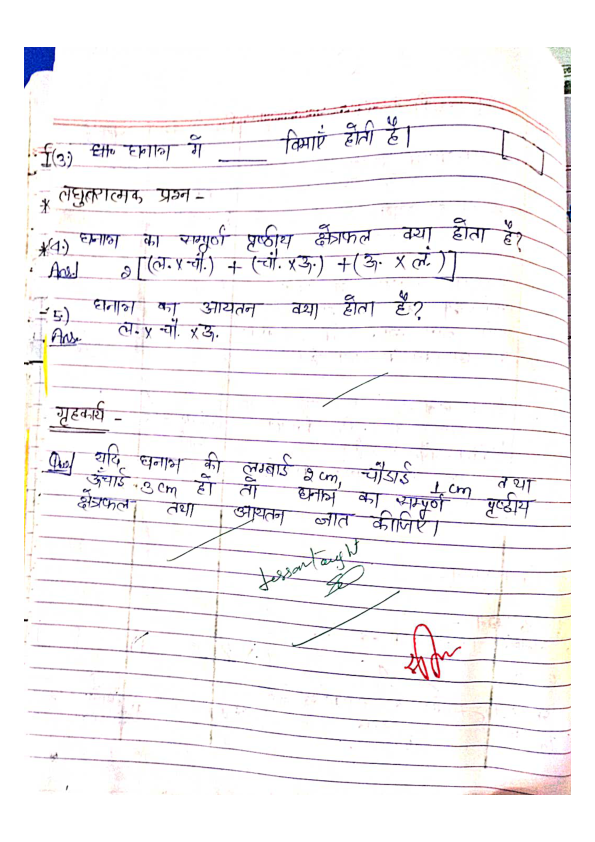 (3.) घनाभ में _____ विमाएँ होती हैं।
* लघुतरात्मक प्रश्न -
*(4.) घनाभ का सम्पूर्ण पृष्ठीय क्षेत्रफल क्या होता है?
Ans 2[(ल. x चौ.) + (चौ. x ऊ.) + (ऊ. x लं.)]
5.) घनाभ का आयतन क्या होता है?
Ans. ल. x चौ. x ऊ.
गृहकार्य -
यदि घनाभ की लम्बाई 2 cm, चौडाई 1 cm तथा
ऊँचाई 3 cm हो तो घनाभ का सम्पूर्ण पृष्ठीय
क्षेत्रफल तथा आयतन ज्ञात कीजिए।
Lesson taught